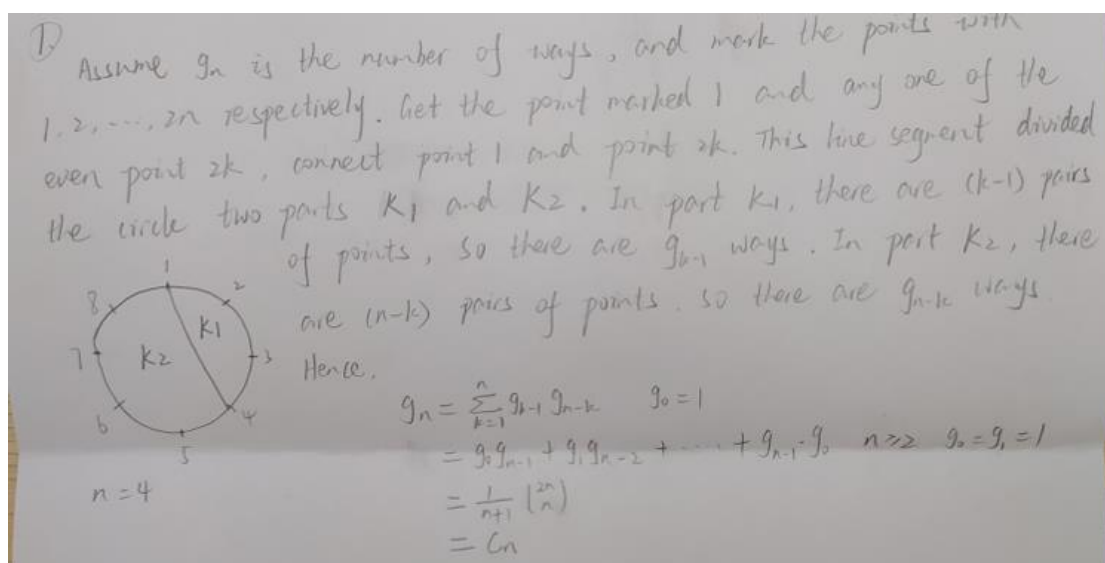 ①
Assume gn is the number of ways, and mark the points with
1, 2, ----, 2n respectively. Get the point marked 1 and any one of the
even point 2k, connect point 1 and point 2k. This line segment divided
the circle two parts K1 and K2. In part K1, there are (k-1) pairs
of points, so there are gk-1 ways. In part K2, there
are (n-k) pairs of points. so there are gn-k ways.
Hence.
1
2
3
4
5
6
7
8
K1
K2
n = 4
gn = Σ_{k=1}^{n} gk-1 gn-k    g0 = 1
= g0 gn-1 + g1 gn-2 + ····· + gn-1 · g0    n≥2    g0 = g1 = 1
= 1/(n+1) (2n n)
= Cn